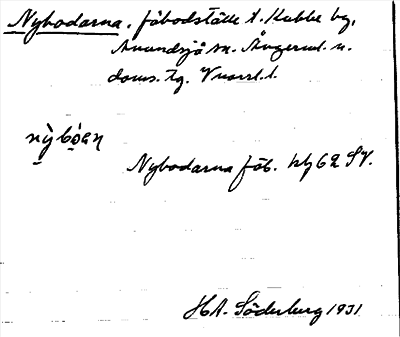 Nybodarna. fäbodställe t. Kubbe by,
Anundsjö sn. Ångerml. n.
doms. tg. Vnorrl. l.
nỳbòen
Nybodarna fäb. kbl 62 SV.
H. A. Söderberg 1931